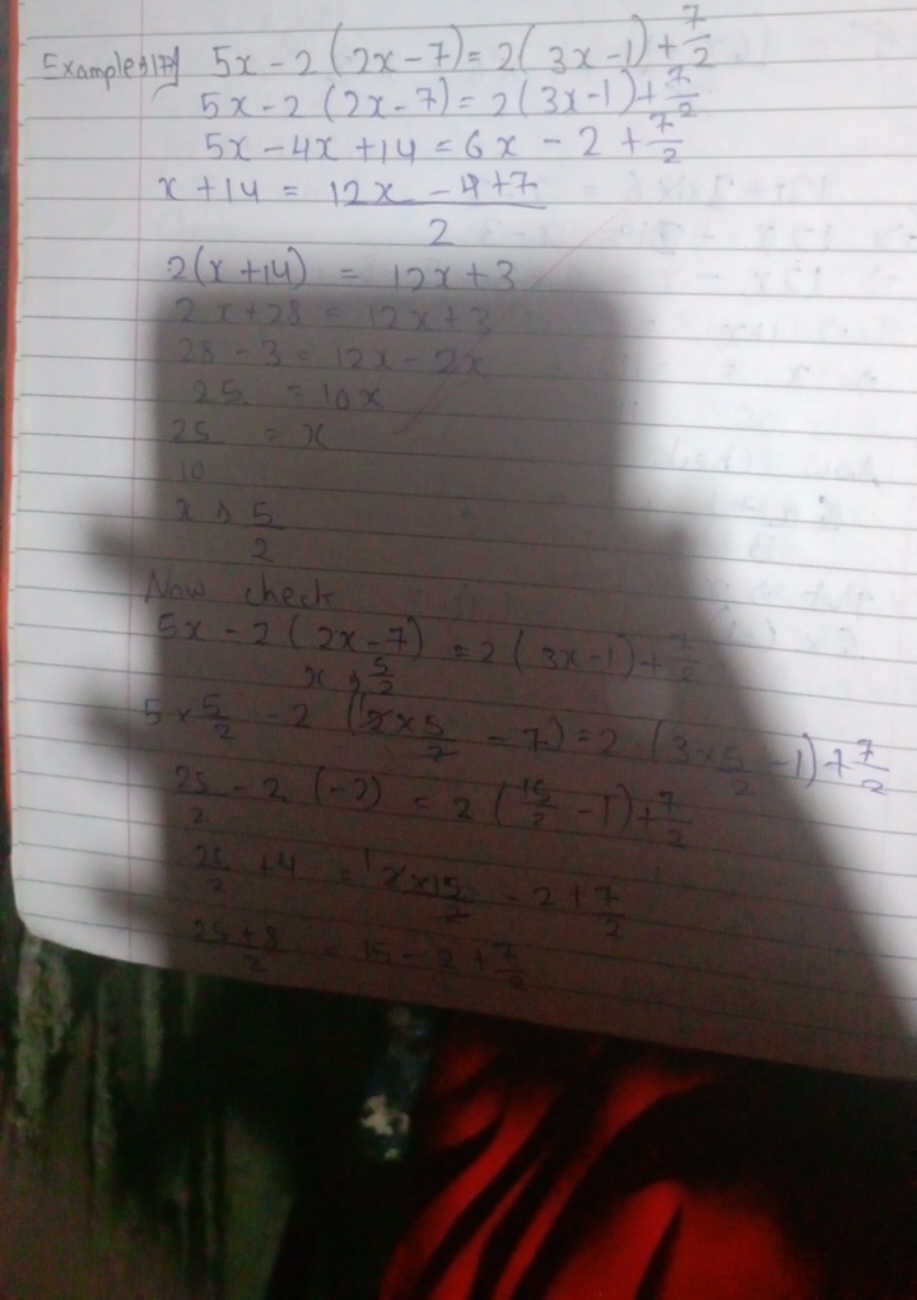 Example 17) 5x - 2 (2x - 7) = 2 (3x - 1) + 7/2
5x - 2 (2x - 7) = 2 (3x - 1) + 7/2
5x - 4x + 14 = 6x - 2 + 7/2
x + 14 = (12x - 4 + 7)/2
2(x + 14) = 12x + 3
2x + 28 = 12x + 3
28 - 3 = 12x - 2x
25 = 10x
25/10 = x
x = 5/2
Now check
5x - 2 (2x - 7) = 2 (3x - 1) + 7/2
x = 5/2
5 × 5/2 - 2 (2 × 5/2 - 7) = 2 (3 × 5/2 - 1) + 7/2
25/2 - 2 (-2) = 2 (15/2 - 1) + 7/2
25/2 + 4 = 2 × 15/2 - 2 + 7/2
(25 + 8)/2 = 15 - 2 + 7/2